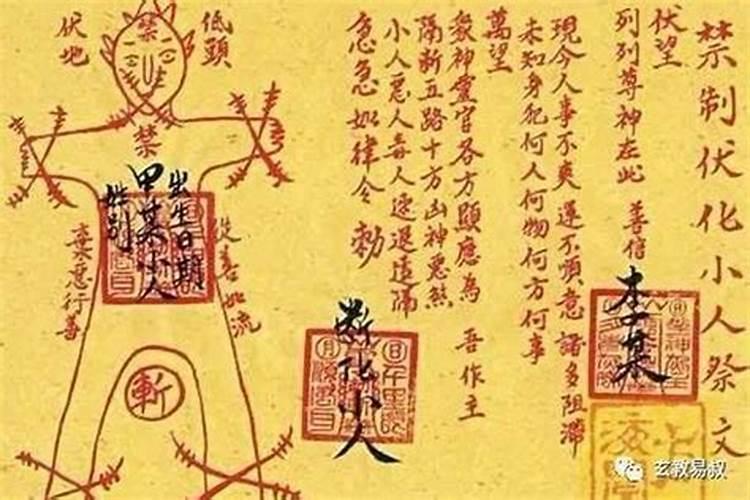 禁制伏化小人祭文
伏望
列列尊神在此 善信
李某
現今人事不爽 運不順意 諸多阻滯
未知身犯何人何物何方何事
萬望
眾神靈官各方顯應為 吾作主
隔斷五路十方凶神惡煞
小人惡人毒人速退遠隔
急急如律令 勅
斬化小人
低頭
伏地
禁
禁
出生日期
甲某小人
姓別
從善如流
棄惡行善
斬
玄教易叔